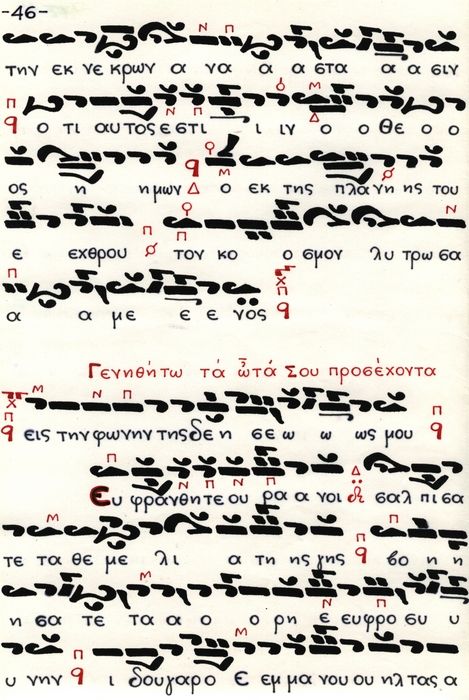 -46-
την εκ νε κρων α να α α στα α α σιν
ο τι αυτος ε στι ι ιν ο ο θε ο ο
ος η ημων Δ ο εκ της πλα νη ης του
ε εχθρου τον κο ο σμον λυ τρω σα
α α με ε ε νος
Γενηθήτω τά ὦτά Σου προσέχοντα
εις την φωνην της δε η σε ω ω ως μου
Ευ φρανθητε ου ρα α νοι σαλ πι σα
τε τα θε με λι α τη ης γης βο η η
η σα τε τα α ο ο ρη ε ευφρο συ υ
υ νην ι δου γαρ ο Ε εμ μα νου ου ηλ τας α